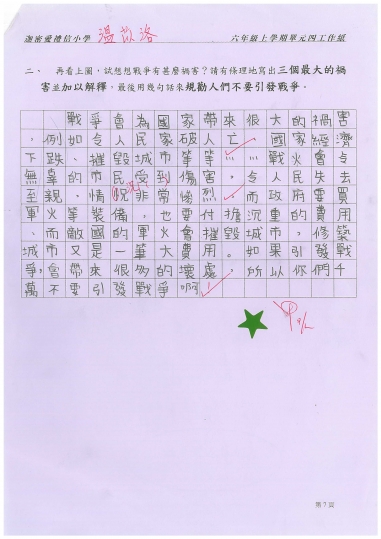 迦密愛禮信小學 溫苡洛 六年級上學期單元四工作紙
二、 再看上圖，試想想戰爭有甚麼禍害？請有條理地寫出三個最大的禍
害並加以解釋，最後用幾句話來規勸人們不要引發戰爭。
戰爭會為國家帶來很大的禍害
，例如令人民家破人亡、國家經濟
下跌、摧毀城市等等⋯⋯戰火會令
無辜的市民受到傷害，令人民失去
至親，情況非常慘烈。而政府要買
軍火等裝備，也要付擔沉重的費用
、而敵國的軍火會摧毀城市，修築
城市又是一筆大費用。如果引發戰
爭，會帶來很多的壞處，所以你們千
萬不要引發戰爭啊！
第7頁